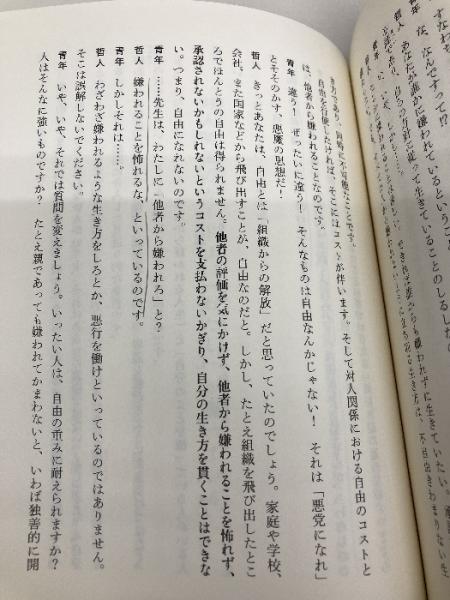 すなわち
な、なんですって!?
あなたが誰かに嫌われているということ
き方であり、同時に不可能なことです。
自由を行使したければ、そこにはコストが伴います。そして対人関係における自由のコストと
は、他者から嫌われることなのです。
青年 違う! ぜったいに違う! そんなものは自由なんかじゃない! それは「悪党になれ」
とそそのかす、悪魔の思想だ!
哲人 きっとあなたは、自由とは「組織からの解放」だと思っていたのでしょう。家庭や学校、
会社、また国家などから飛び出すことが、自由なのだと。しかし、たとえ組織を飛び出したとこ
ろでほんとうの自由は得られません。他者の評価を気にかけず、他者から嫌われることを怖れず、
承認されないかもしれないというコストを支払わないかぎり、自分の生き方を貫くことはできな
い。つまり、自由になれないのです。
青年 ……先生は、わたしに「他者から嫌われろ」と?
哲人 嫌われることを怖れるな、といっているのです。
青年 しかしそれは……。
哲人 わざわざ嫌われるような生き方をしろとか、悪行を働けといっているのではありません。
そこは誤解しないでください。
青年 いや、いや、それでは質問を変えましょう。いったい人は、自由の重みに耐えられますか?
人はそんなに強いものですか? たとえ親であっても嫌われてかまわないと、いわば独善的に開